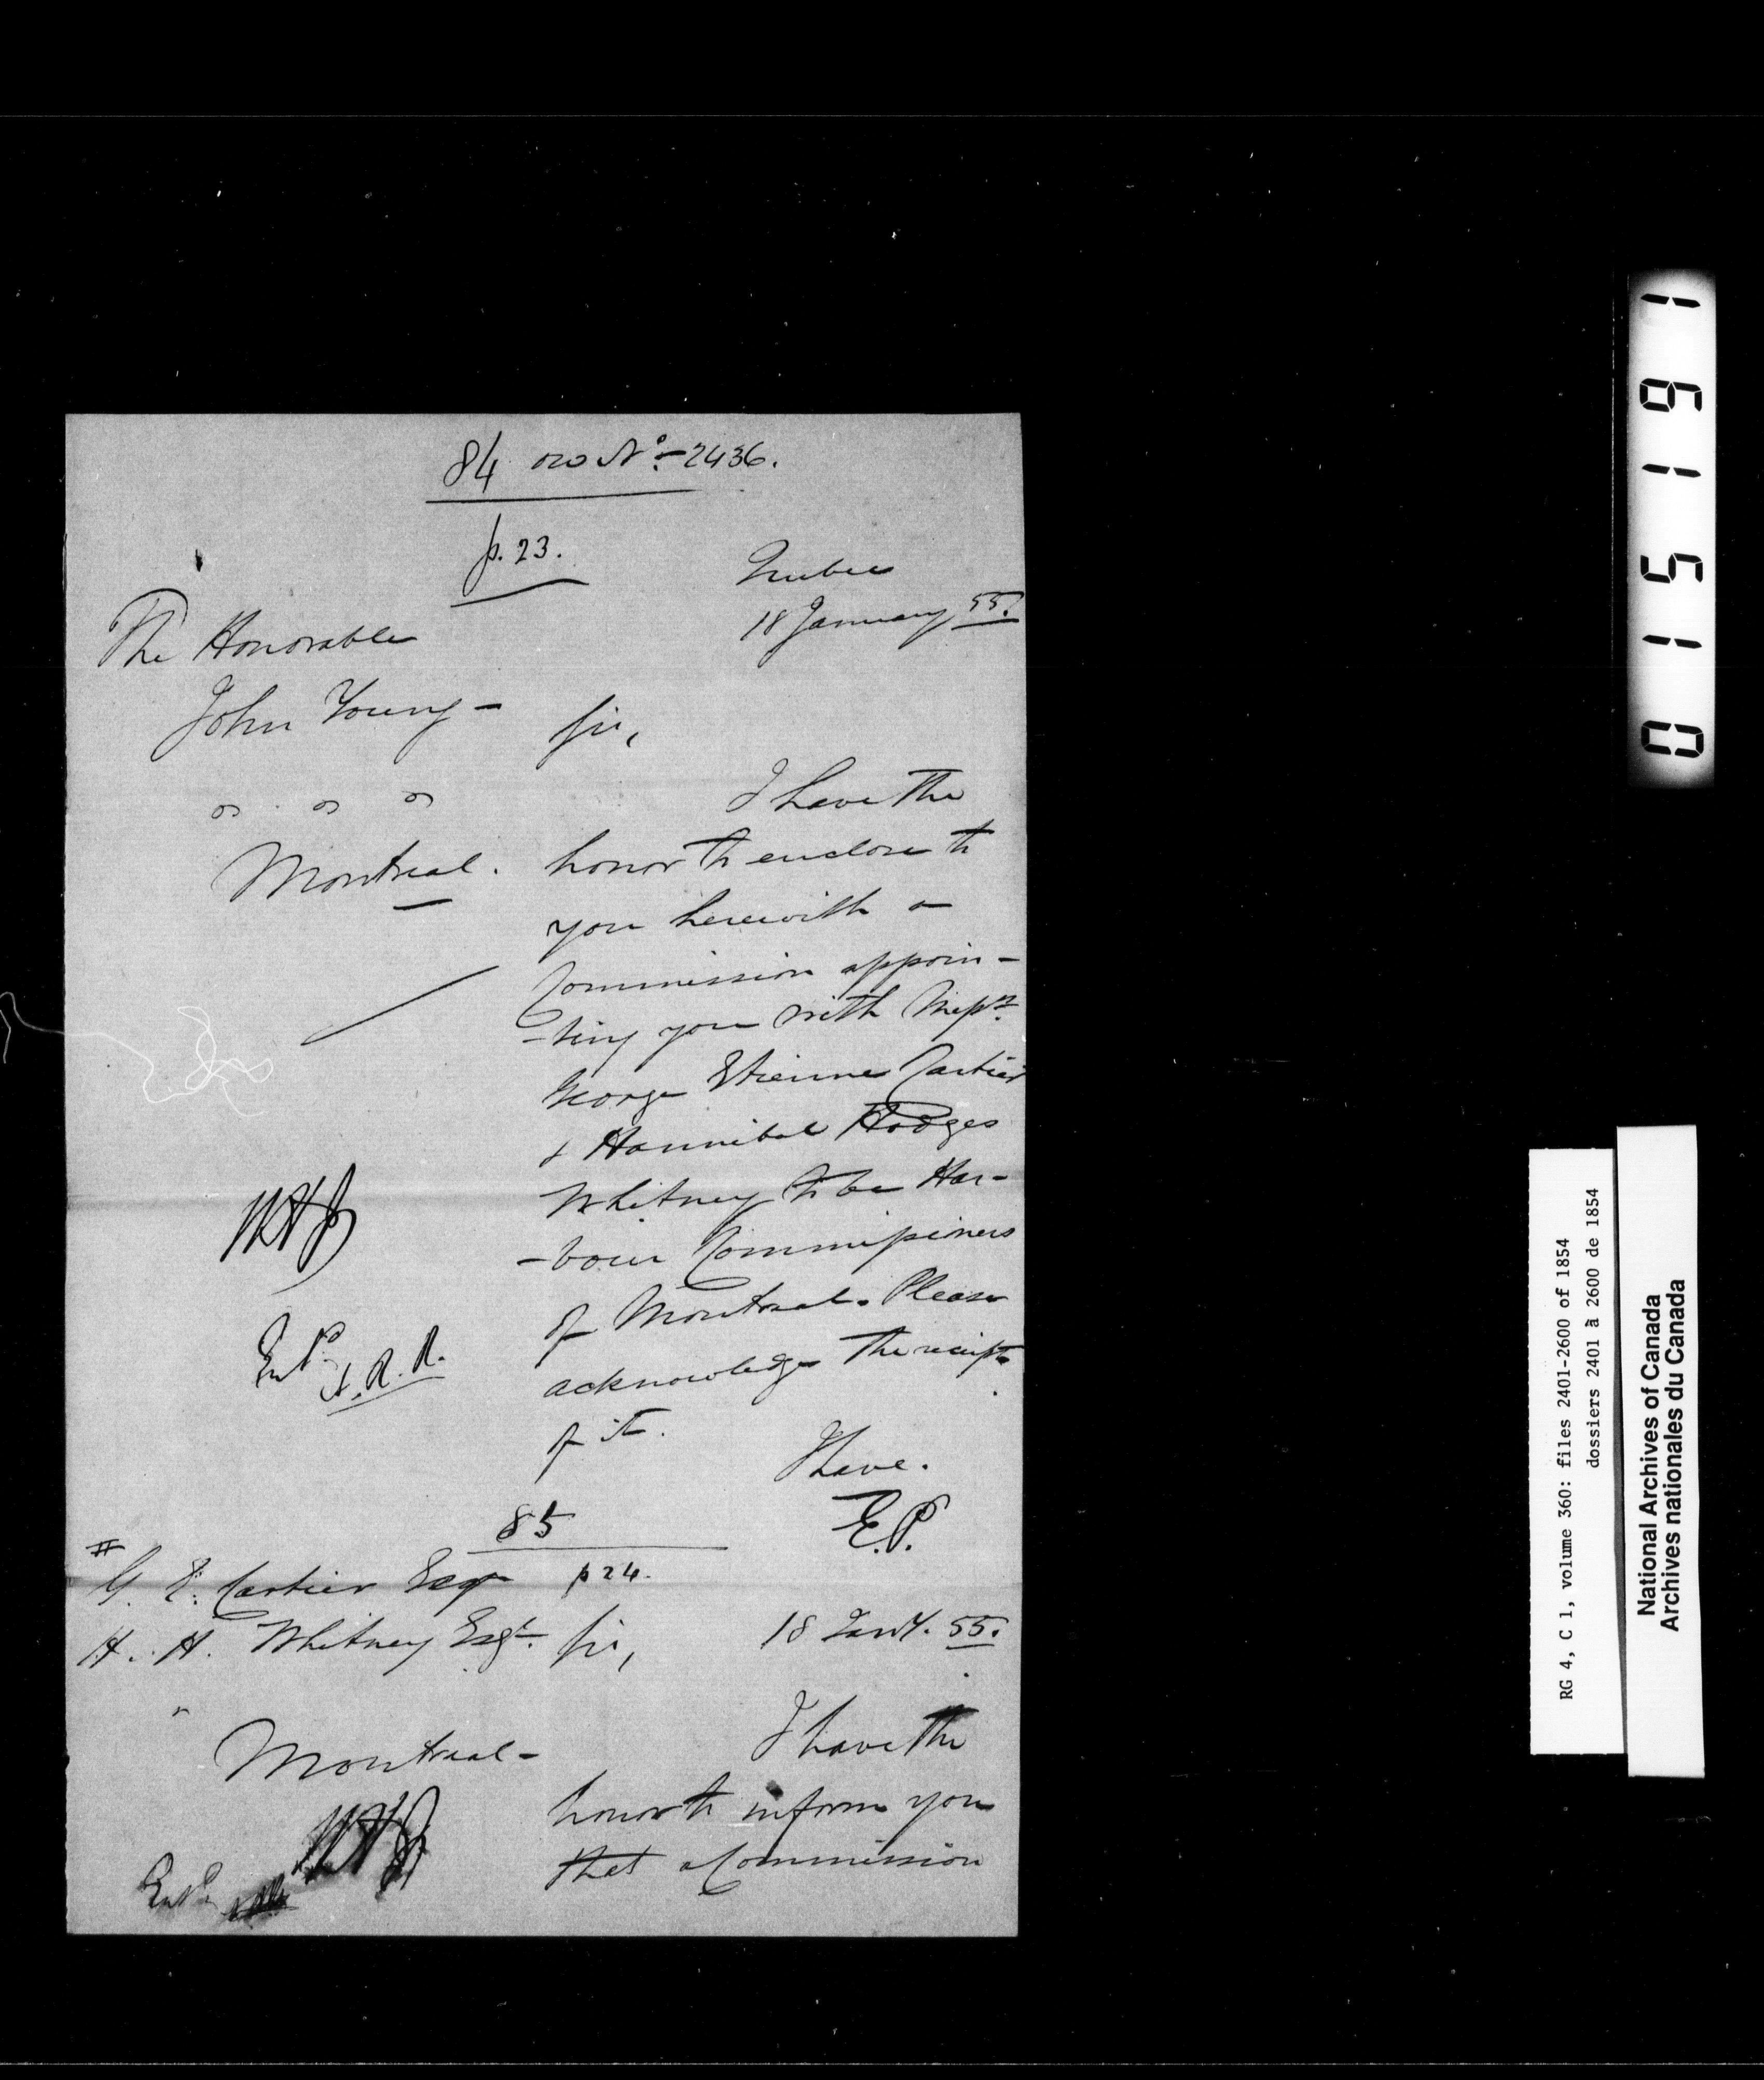 84 on No. 2436.
p. 23.
Quebec
18 January 55.
The Honorable
John Young -
" " "
Montreal.
Sir,
I have the
honor to enclose to
you herewith a
Commission appoin-
-ting you with Messrs.
George Etienne Cartier
& Hannibal Hodges
Whitney to be Har-
-bour Commissioners
of Montreal. Please
acknowledge the receipt
of it.
I have.
E.P.
Entd. A.R.R.
85
p 24.
G. E. Cartier Esqr
H. H. Whitney Esqr.
"
Montreal -
Sir,
18 Jany. 55.
I have the
honor to inform you
that a Commission
Entd.
015191
RG 4, C 1, volume 360: files 2401-2600 of 1854
dossiers 2401 à 2600 de 1854
National Archives of Canada
Archives nationales du Canada